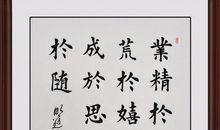 業精於
荒於嬉
成於思
於随